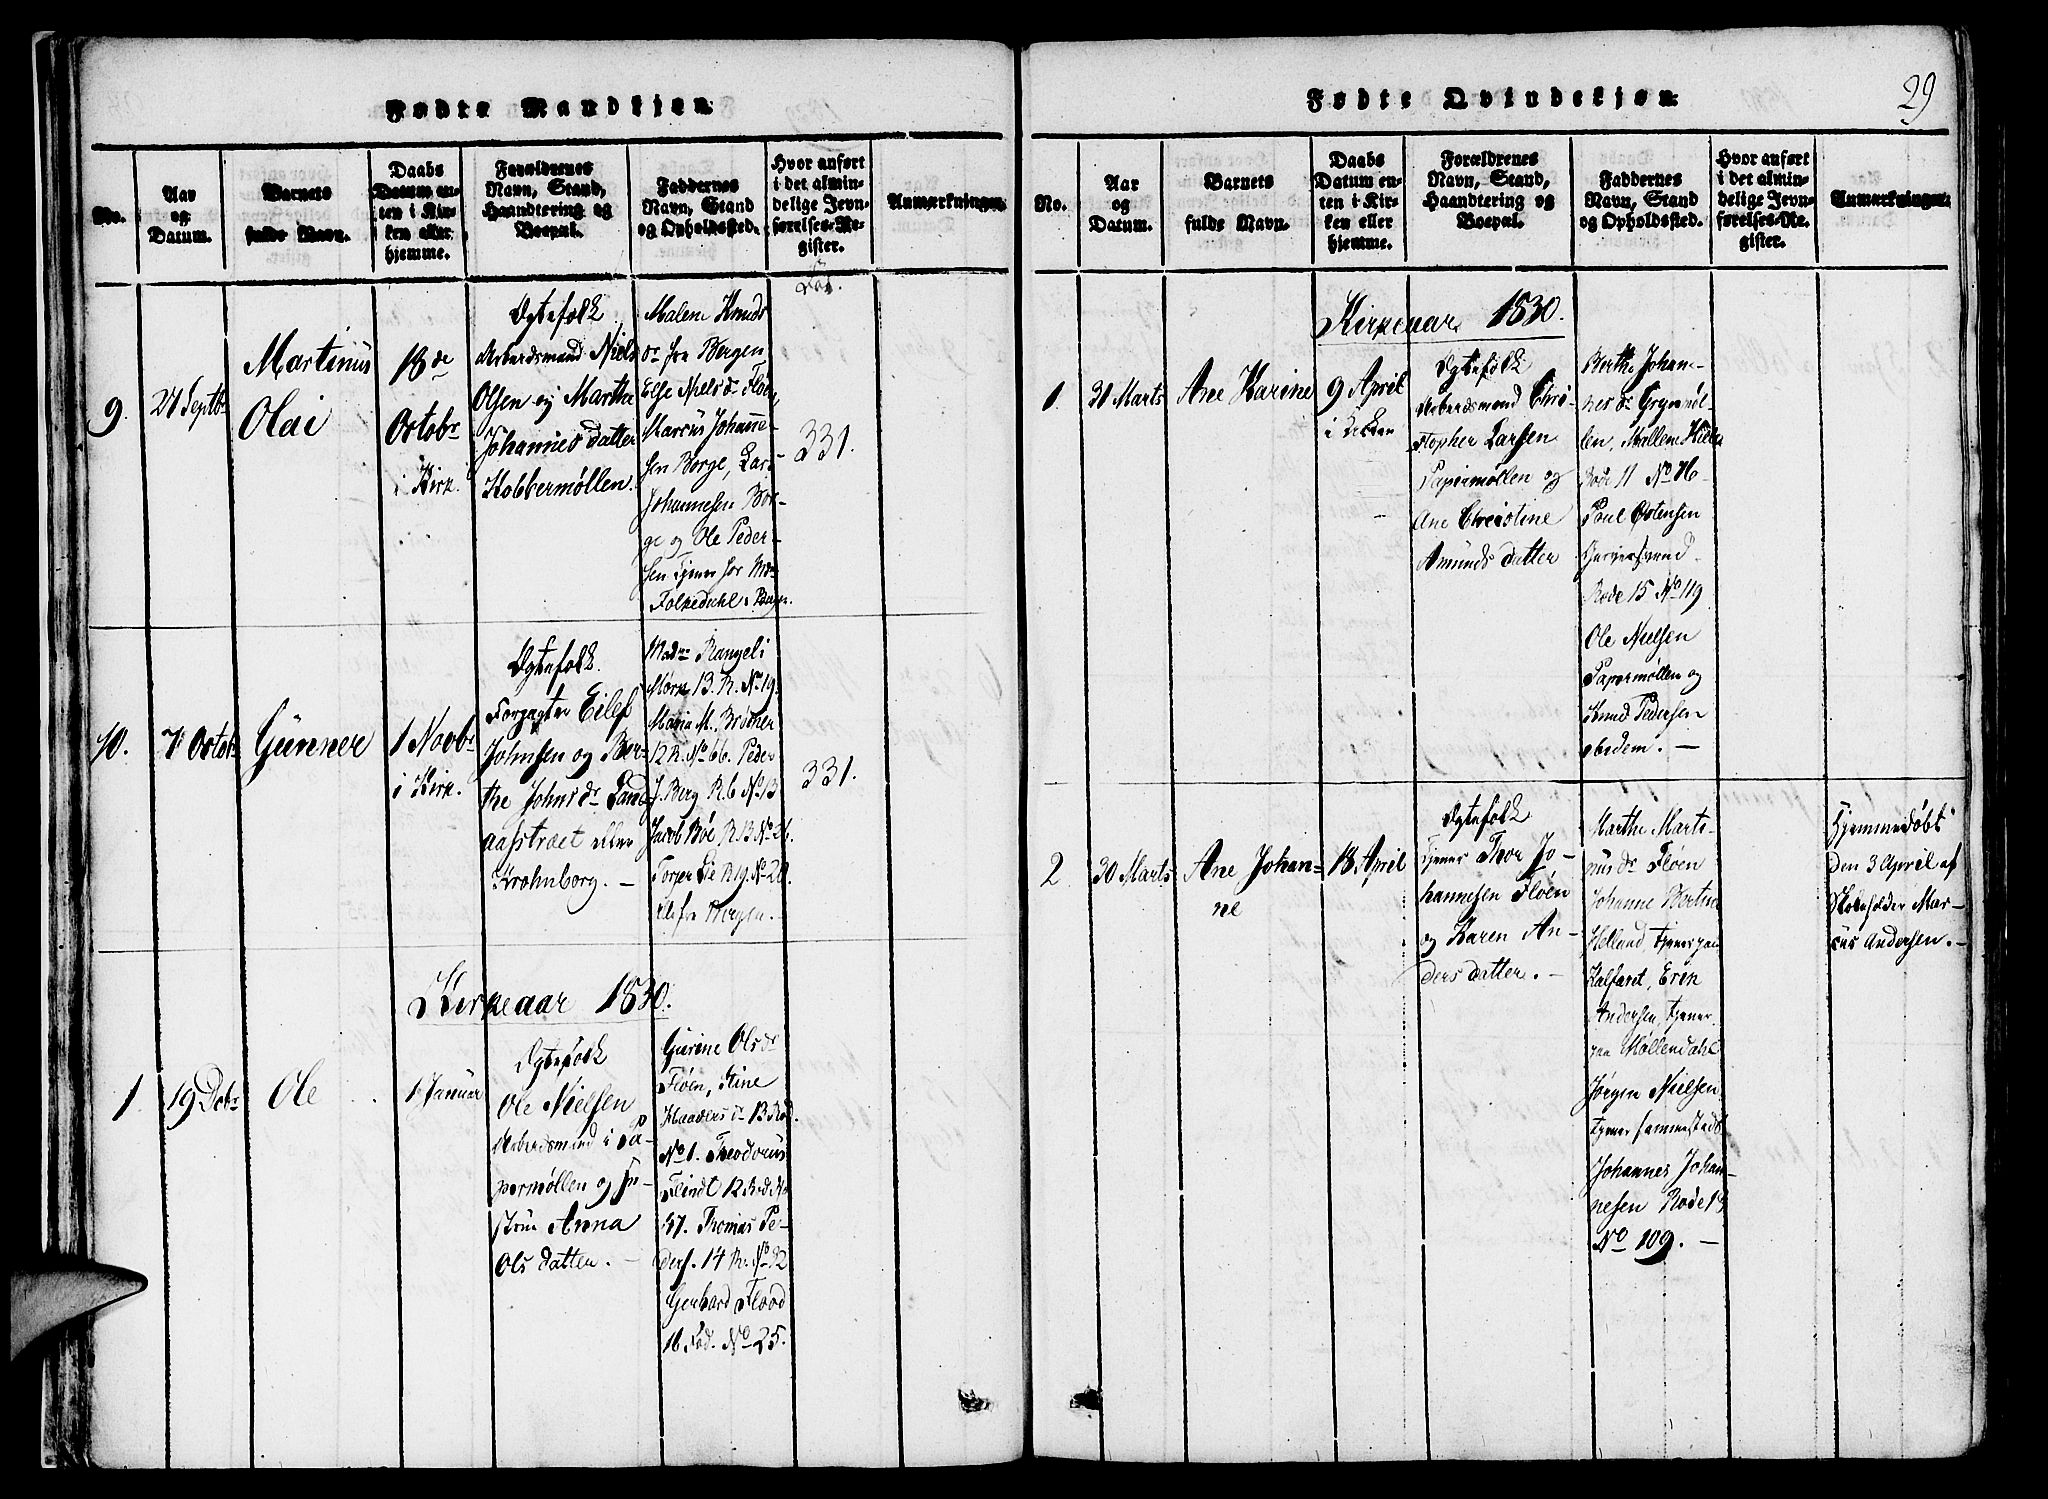 29
Fødte Mandkjøn.
No.
Aar
og
Datum.
Barnets
fulde Navn.
Daabs
Datum en-
ten i Kir-
ken eller
hjemme.
Forældrenes
Navn, Stand,
Haandtering og
Boepæl.
Faddernes
Navn, Stand
og Opholdssted.
Hvor anført
i det almin-
delige Jevn-
førelses-Re-
gister.
Anmærkninger.
9.
27 Septbr
Martinus
Olai
18de
Octobr
i Kirk.
Egtefolk
Arbeidsmand Niels
Olsen og Martha
Johannes datter
Kobbermøllen.
Malene Knuds
dr fra Bergen,
Else Niels dr Floen,
Marcus Johanne-
sen Borge, Lars
Johannesen Bor-
ge og Ole Peder-
sen tjener for
Folkedahl i Bergen.
Fol.
331.
10.
7 Octobr
Gunner
1 Novbr
i Kirk.
Egtefolk.
Forpagter Eilef
Johnsen og Ber-
the Johns dr Land-
aasstræet eller
Krohnborg. —
Madme Rangeli
Mørk 13. R. No 19.
Maria M. Brøcher
12 R. No 66. Peder
J. Berg R. 6 No 13
Jacob Bøe R 13 No 26.
R 19. No 28.
fra Bergen.
331.
Kirkeaar 1830.
1
19 Decbr
Ole
1 Januar
Egtefolk
Ole Nielsen
Arbeidsmand i Pa-
permøllen og Hu-
strue Anna
Ols datter. —
Gurine Ols dr
Fløen, Stine
dr 13 Rod.
No 1. Theodorus
Flindt 12 Rod No
57. Thomas Pe-
ders. 14 R. No 92
Gerhard Flood
16 Rod. No 25.
Fødte Qvindekjøn.
No.
Aar
og
Datum.
Barnets
fulde Navn.
Daabs
Datum en-
ten i Kir-
ken eller
hjemme.
Forældrenes
Navn, Stand,
Haandtering og
Boepæl.
Faddernes
Navn, Stand
og Opholdssted.
Hvor anført
i det almin-
delige Jevn-
førelses-Re-
gister.
Anmærkninger.
Kirkeaar 1830.
1.
30 Marts
Ane Karine
9 April
i Kirken
Egtefolk
Arbeidsmand Chri-
stopher Larsen
Papirmøllen og
Ane Christine
Amunds datter
Berthe Johan-
nes dr
Mallene
Rode 11 No 76
Poul Østensen
Rode 15 No 119
Ole Nielsen
Papermøllen og
Knud Pedersen
ibidem. —
2
30 Marts
Ane Johan-
ne
18 April
Egtefolk
tjener Thor Jo-
hannesen Fløen
og Karen An-
ders datter. —
Marthe Marti-
nus dr Fløen
Johanne Bertine
Helland tjener paa
Kalfaret, Erik
Andersen, tjener
paa Møllendahl
Jørgen Nielsen
tjener sammesteds
Johannes Johan-
nesen Rode 19
No 109. —
Hjemmedøbt
den 3 April af
Skoleholder Mar-
cus Andersen. —